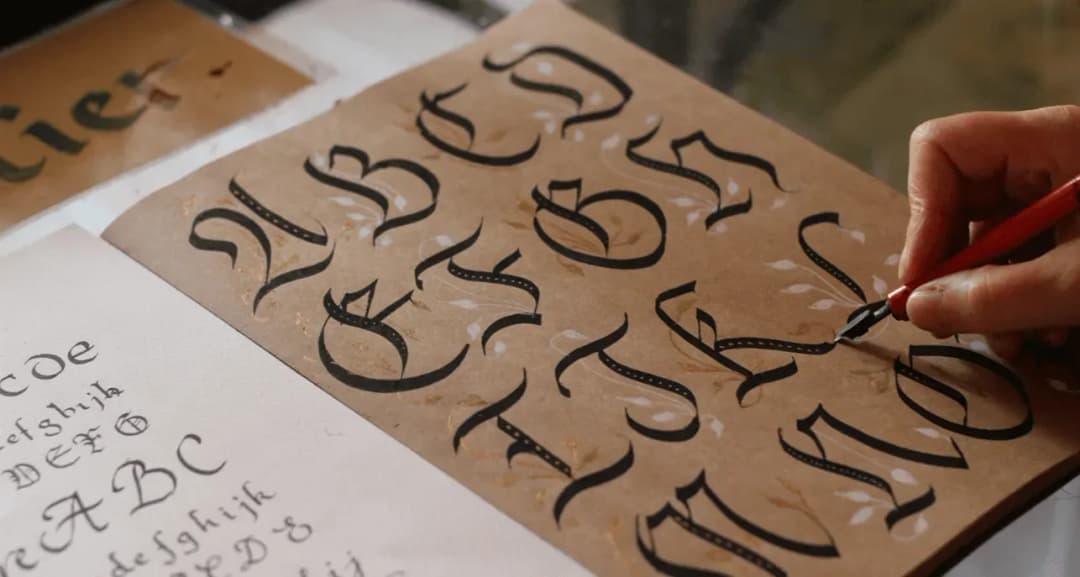 lier
A B C D
E F G H
I J K L
M N O
c d e
e f g h i j k
D E F G
A B C
d e f g h i j k
D E
i j